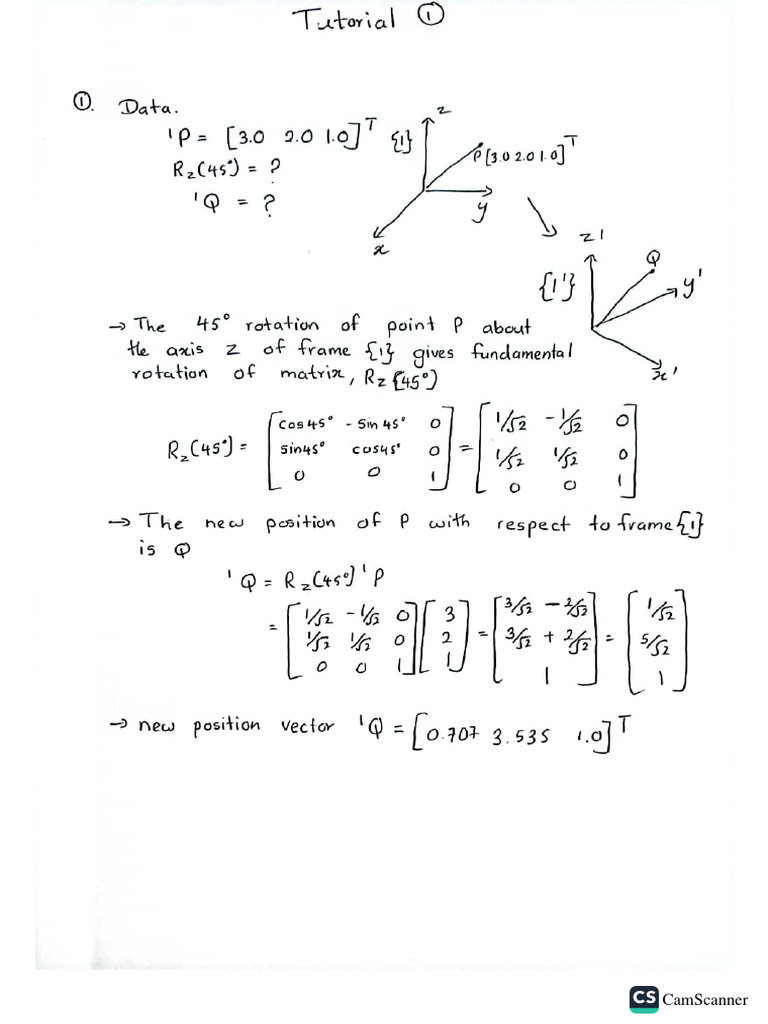 Tutorial ①
①. Data.
¹P = [3.0 2.0 1.0]ᵀ
R_z(45°) = ?
¹Q = ?
{1}
z
P[3.0 2.0 1.0]ᵀ
y
x
{1'}
z'
Q
y'
x'
→ The 45° rotation of point P about
the axis z of frame {1} gives fundamental
rotation of matrix, R_z(45°)
R_z(45°) = [cos45° - sin 45° 0; sin45° cos45° 0; 0 0 1] = [1/√2 -1/√2 0; 1/√2 1/√2 0; 0 0 1]
→ The new position of P with respect to frame {1}
is Q
¹Q = R_z(45°) ¹P
= [1/√2 -1/√2 0; 1/√2 1/√2 0; 0 0 1] [3; 2; 1] = [3/√2 - 2/√2; 3/√2 + 2/√2; 1] = [1/√2; 5/√2; 1]
→ new position vector ¹Q = [0.707 3.535 1.0]ᵀ
CS CamScanner